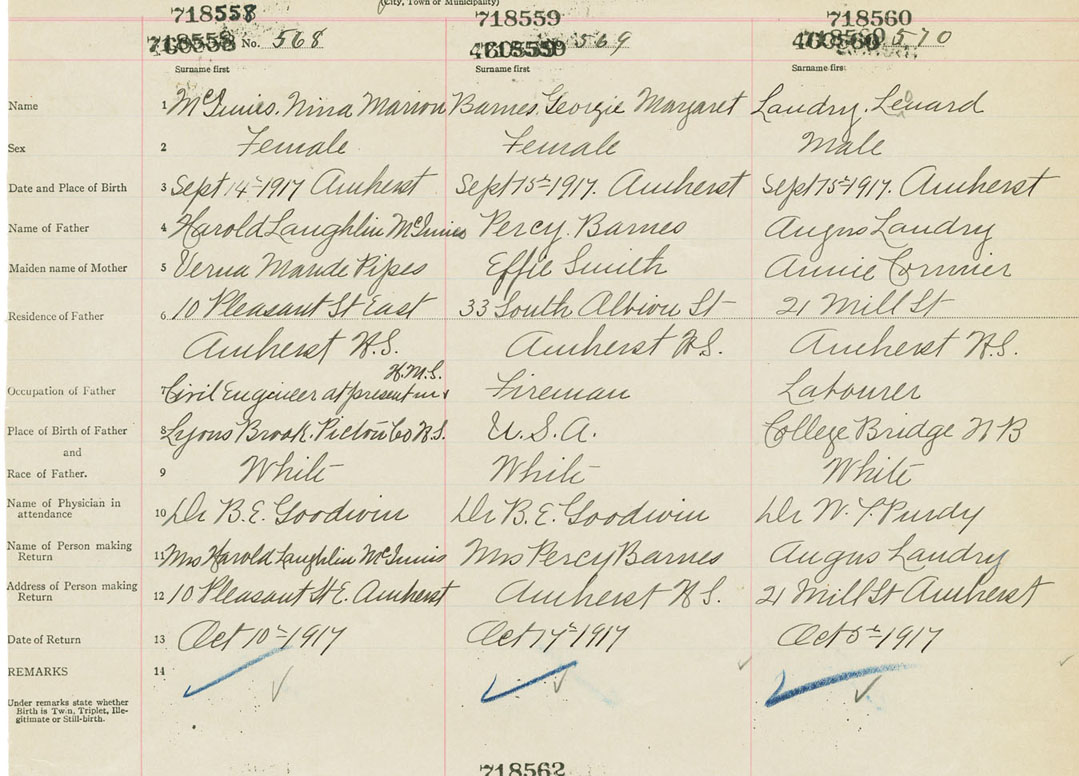 (City, Town or Municipality)
718558 718559 718560
718558 No. 568 569 570
Surname first Surname first Surname first
Name 1 McGinnis, Nina Marion Barnes, Georgie Margaret Landry, Lenard
Sex 2 Female Female Male
Date and Place of Birth 3 Sept 14th 1917 Amherst Sept 15th 1917. Amherst Sept 15th 1917. Amherst
Name of Father 4 Harold Laughlin McGinnis Percy Barnes Angus Landry
Maiden name of Mother 5 Verna Maude Pipes Effie Smith Annie Cormier
Residence of Father 6 10 Pleasant St East 33 South Albion St 21 Mill St
Amherst N.S. Amherst N.S. Amherst N.S.
Occupation of Father 7 Civil Engineer at present in Fireman Labourer
Place of Birth of Father 8 Lyons Brook, Pictou Co N.S. U.S.A. College Bridge N B
and
Race of Father. 9 White White White
Name of Physician in attendance 10 Dr B.E. Goodwin Dr B.E. Goodwin Dr W. T. Purdy
Name of Person making Return 11 Mrs Harold Laughlin McGinnis Mrs Percy Barnes Angus Landry
Address of Person making Return 12 10 Pleasant St E. Amherst Amherst N.S. 21 Mill St Amherst
Date of Return 13 Oct 10th 1917 Oct 17th 1917 Oct 5th 1917
REMARKS 14
Under remarks state whether
Birth is Twin, Triplet, Ille-
gitimate or Still-birth.
718562